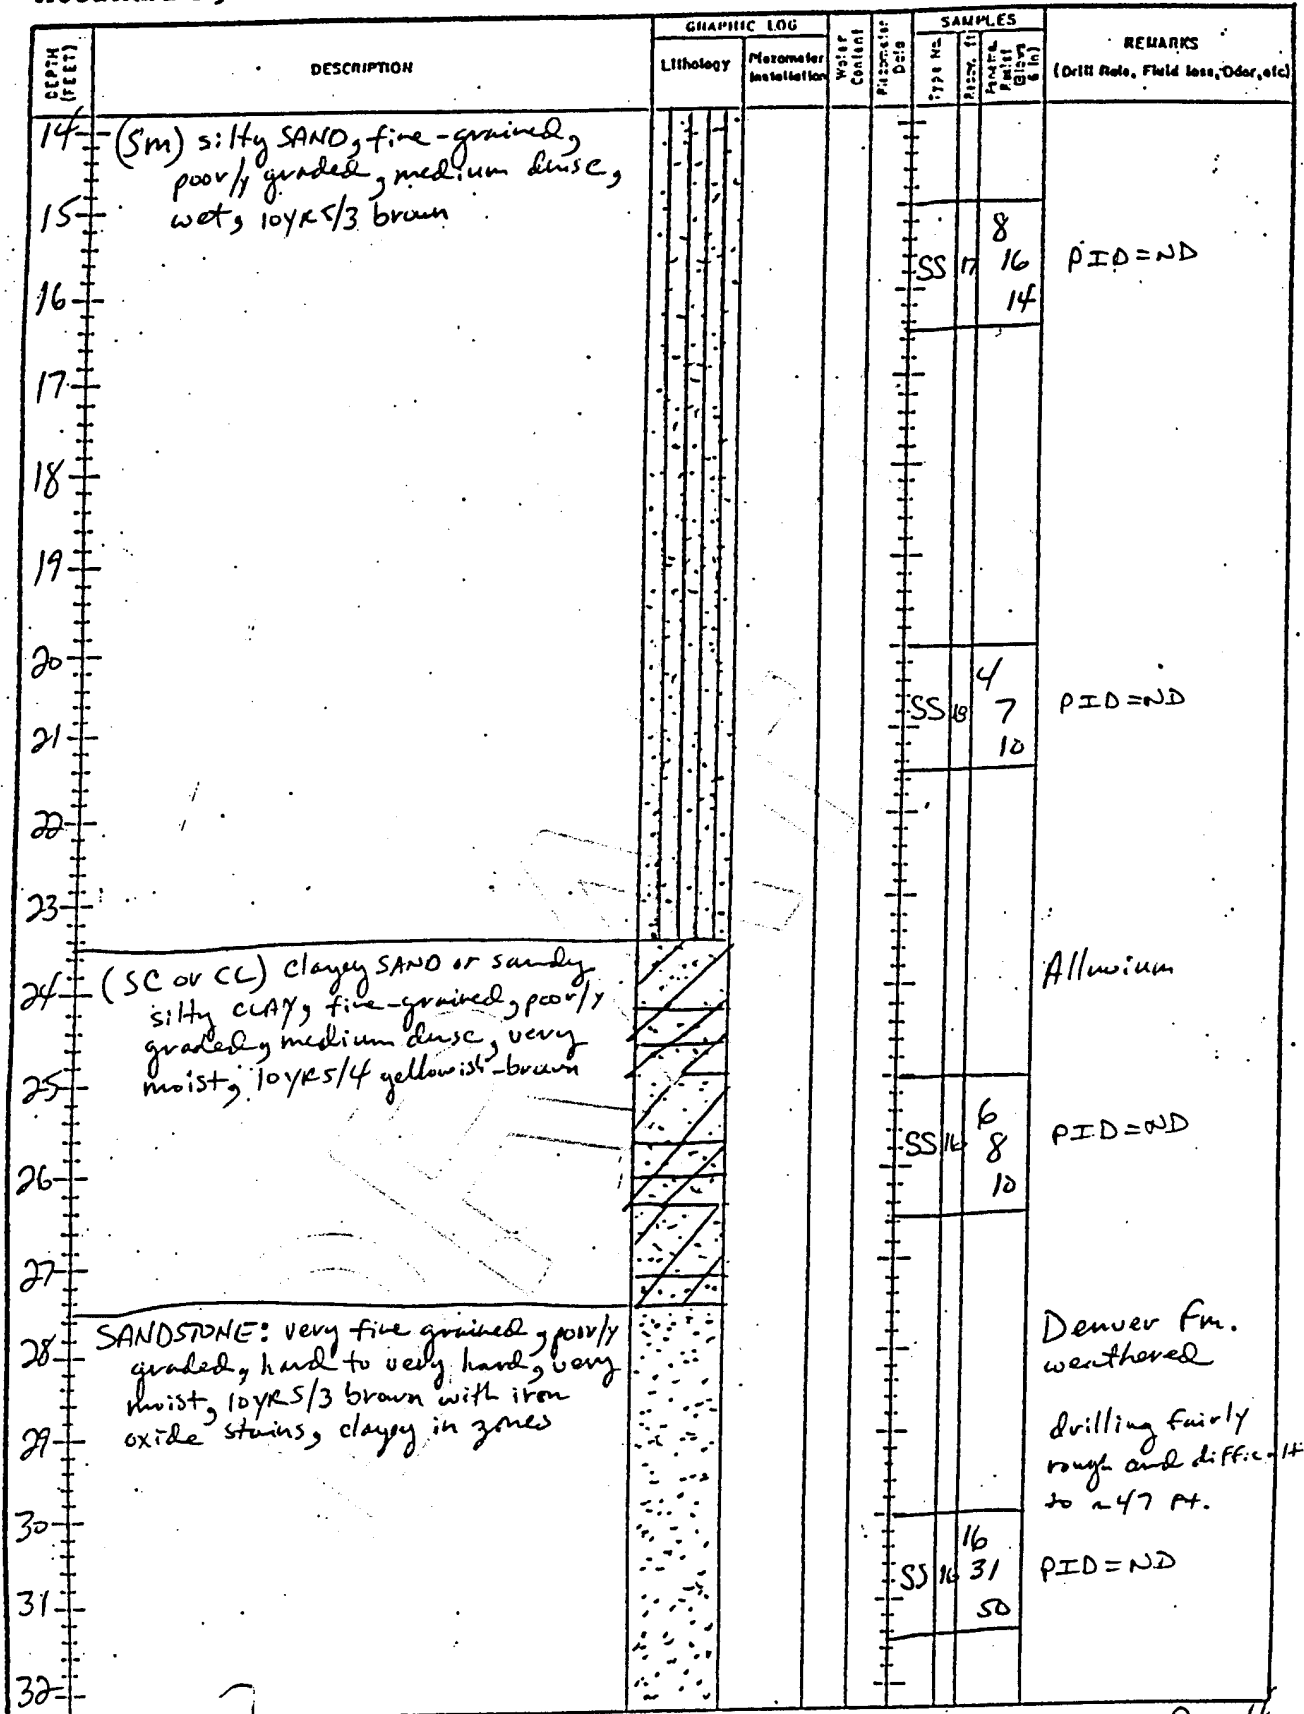 GRAPHIC LOG
SAMPLES
DEPTH
(FEET)
DESCRIPTION
Lithology
Piezometer
Installation
Water
Content
Piezometer
Data
Type No.
REMARKS
(Drill Rate, Fluid loss, Odor, etc)
14
(Sm) silty SAND, fine-grained,
poorly graded, medium dense,
wet, 10YR5/3 brown
15
8
SS 17 16
14
PID=ND
16
17
18
19
20
4
SS 7
10
PID=ND
21
22
23
(SC or CL) clayey SAND or sandy
silty CLAY, fine-grained, poorly
graded, medium dense, very
moist, 10YR5/4 yellowish-brown
24
Alluvium
25
6
SS 16 8
10
PID=ND
26
27
SANDSTONE: very fine grained, poorly
graded, hard to very hard, very
moist, 10YR5/3 brown with iron
oxide stains, clayey in zones
28
Denver Fm.
weathered
29
drilling fairly
rough and difficult
to ~47 ft.
30
16
SS 16 31
50
PID=ND
31
32